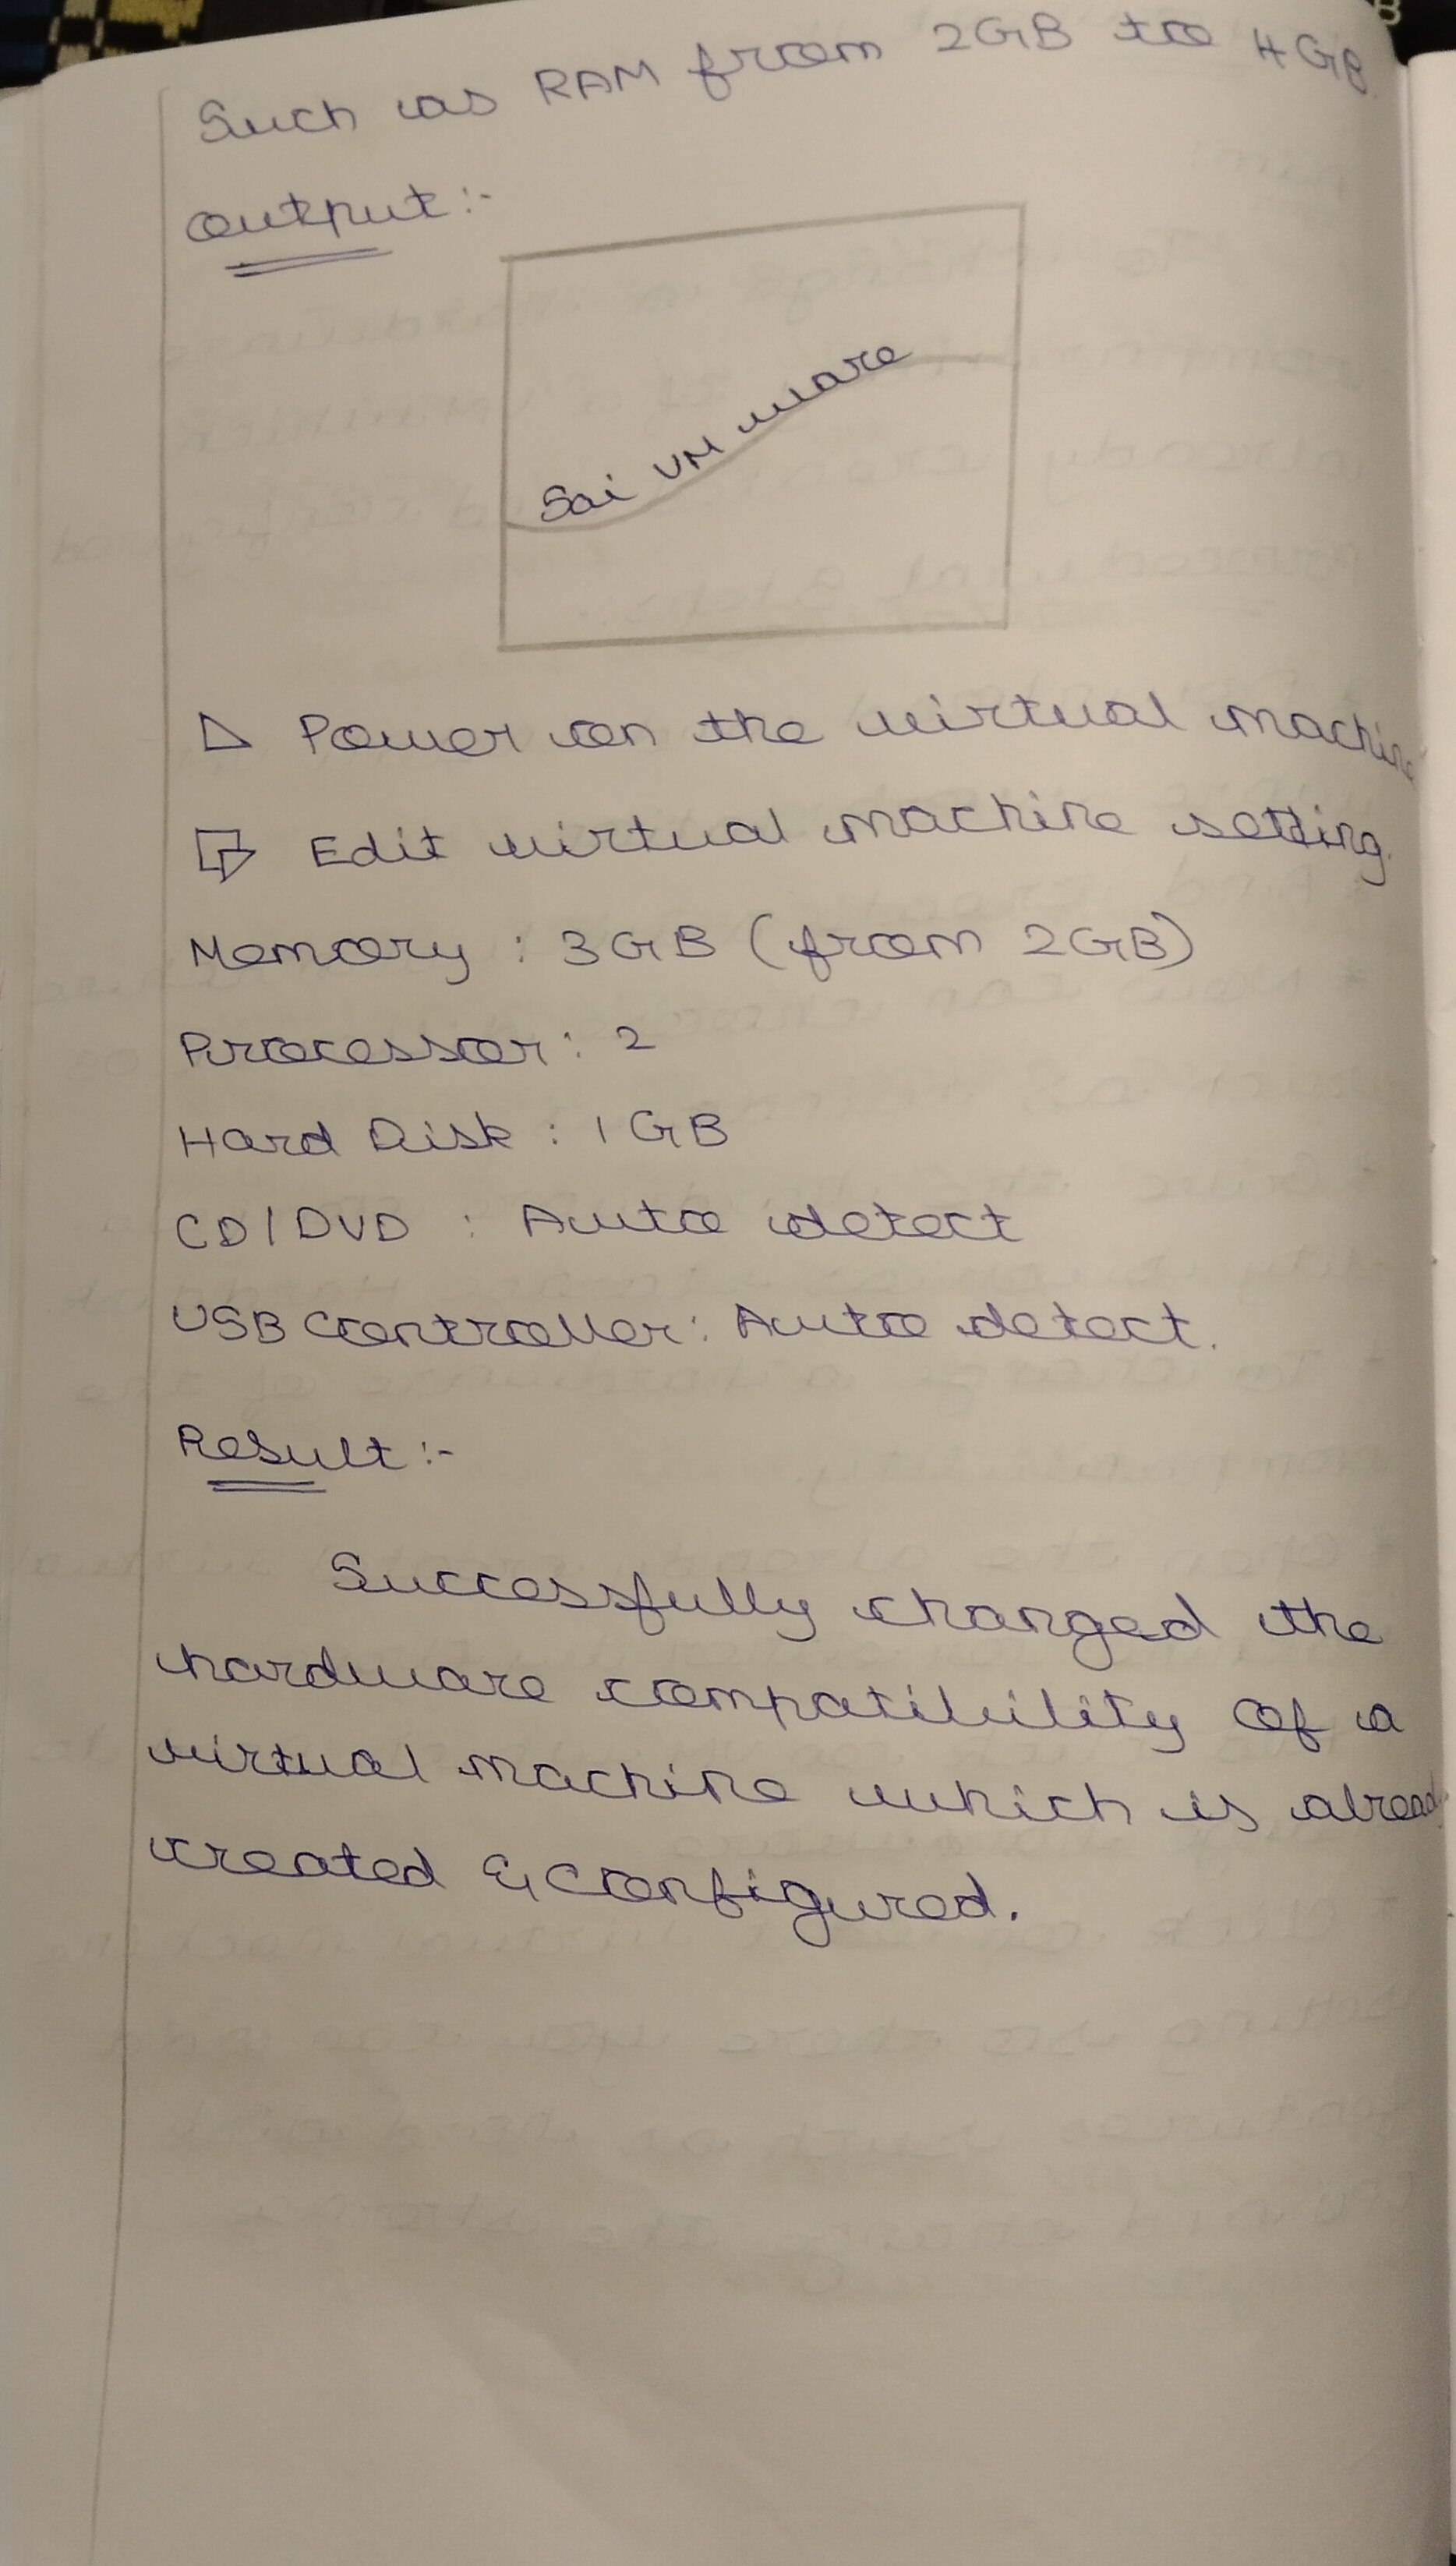 Such as RAM from 2GB to 4GB.
Output:-
Sai VM ware
Power on the virtual machine
Edit virtual machine setting.
Memory : 3GB (from 2GB)
Processor : 2
Hard Disk : 1GB
CD/DVD : Auto detect
USB Controller: Auto detect.
Result:-
Successfully changed the
hardware compatibility of a
virtual machine which is already
created & configured.